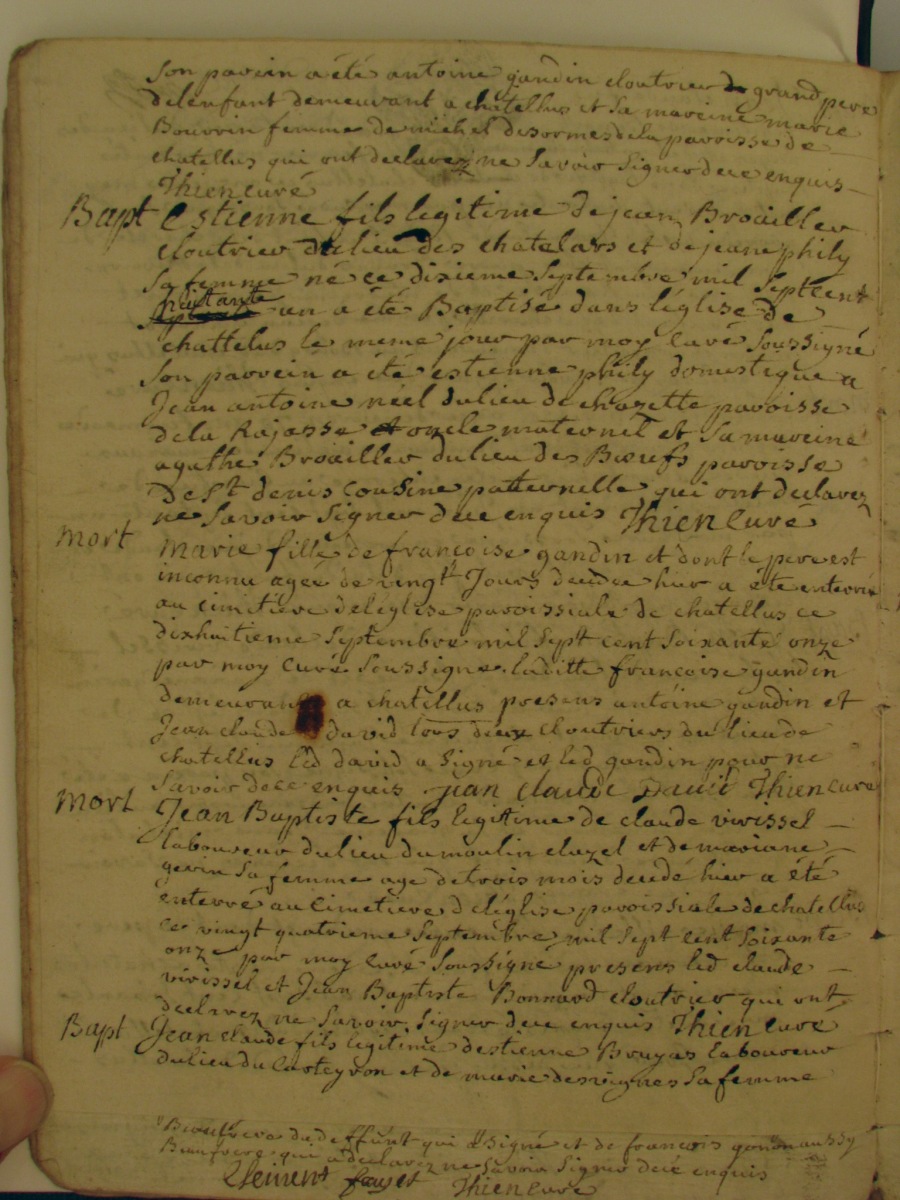 Son parein a été antoine gandin cloutrier grand pere
delenfant demeurant a chatellus et sa mareine marie
Bourrin femme de michel desormes dela paroisse de
chatellus qui ont declarez ne savoir signer dece enquis
Thien curé
Bapt Estienne fils legitime de jean Broailler
cloutrier du lieu des chatelars et de jeane phily
sa femme né ce dixieme septembre mil sept cent
un a été Baptisé dans léglise de
chattelus le meme jour par moy curé soussigné
son parrein a été estienne phily domestique a
Jean antoine néel du lieu de chazette paroisse
de la Rajasse oncle maternel et sa mareine
agathe Broailler du lieu des Bœufs paroisse
de St denis cousine patternelle qui ont declarez
ne savoir signer dece enquis Thien curé
mort marie fille de francoise gandin et dont le pere est
inconnu ageé de vingt jours decedeé hier a éte enterreé
au cimetiere deléglise paroissiale de chatellus ce
dixhuitieme septembre mil sept cent soixante onze
par moy curé soussigne. laditte francoise gandin
demeurant a chatellus presens antoine gandin et
Jean claude david tous deux cloutriers du lieu de
chatellus led david a signé et led gandin pour ne
savoir dece enquis jean claude David Thien curé
mort Jean Baptiste fils legitime de claude virissel
laboureur du lieu du moulin cluzel et de mariane
gerin sa femme age de trois mois decedé hier a été
enterré au cimetiere d eléglise paroissiale de chatellus
ce vingt quatrieme septembre mil sept cent soixante
onze par moy curé soussigne presens led claude
virissel et Jean Baptiste Bonnard cloutrier qui ont
declarez ne savoir signer dece enquis Thien curé
Bapt Jean claude fils legitime destienne Bruyas laboureur
du lieu du Casteyron et de marie desvignes sa femme
du deffunt qui a signé et de francois
Beaufrere qui a declarez ne savoir signer dece enquis
Clement fayet Thien curé